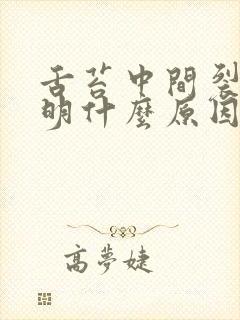 舌苔中間裂
明什麼原因
高夢婕